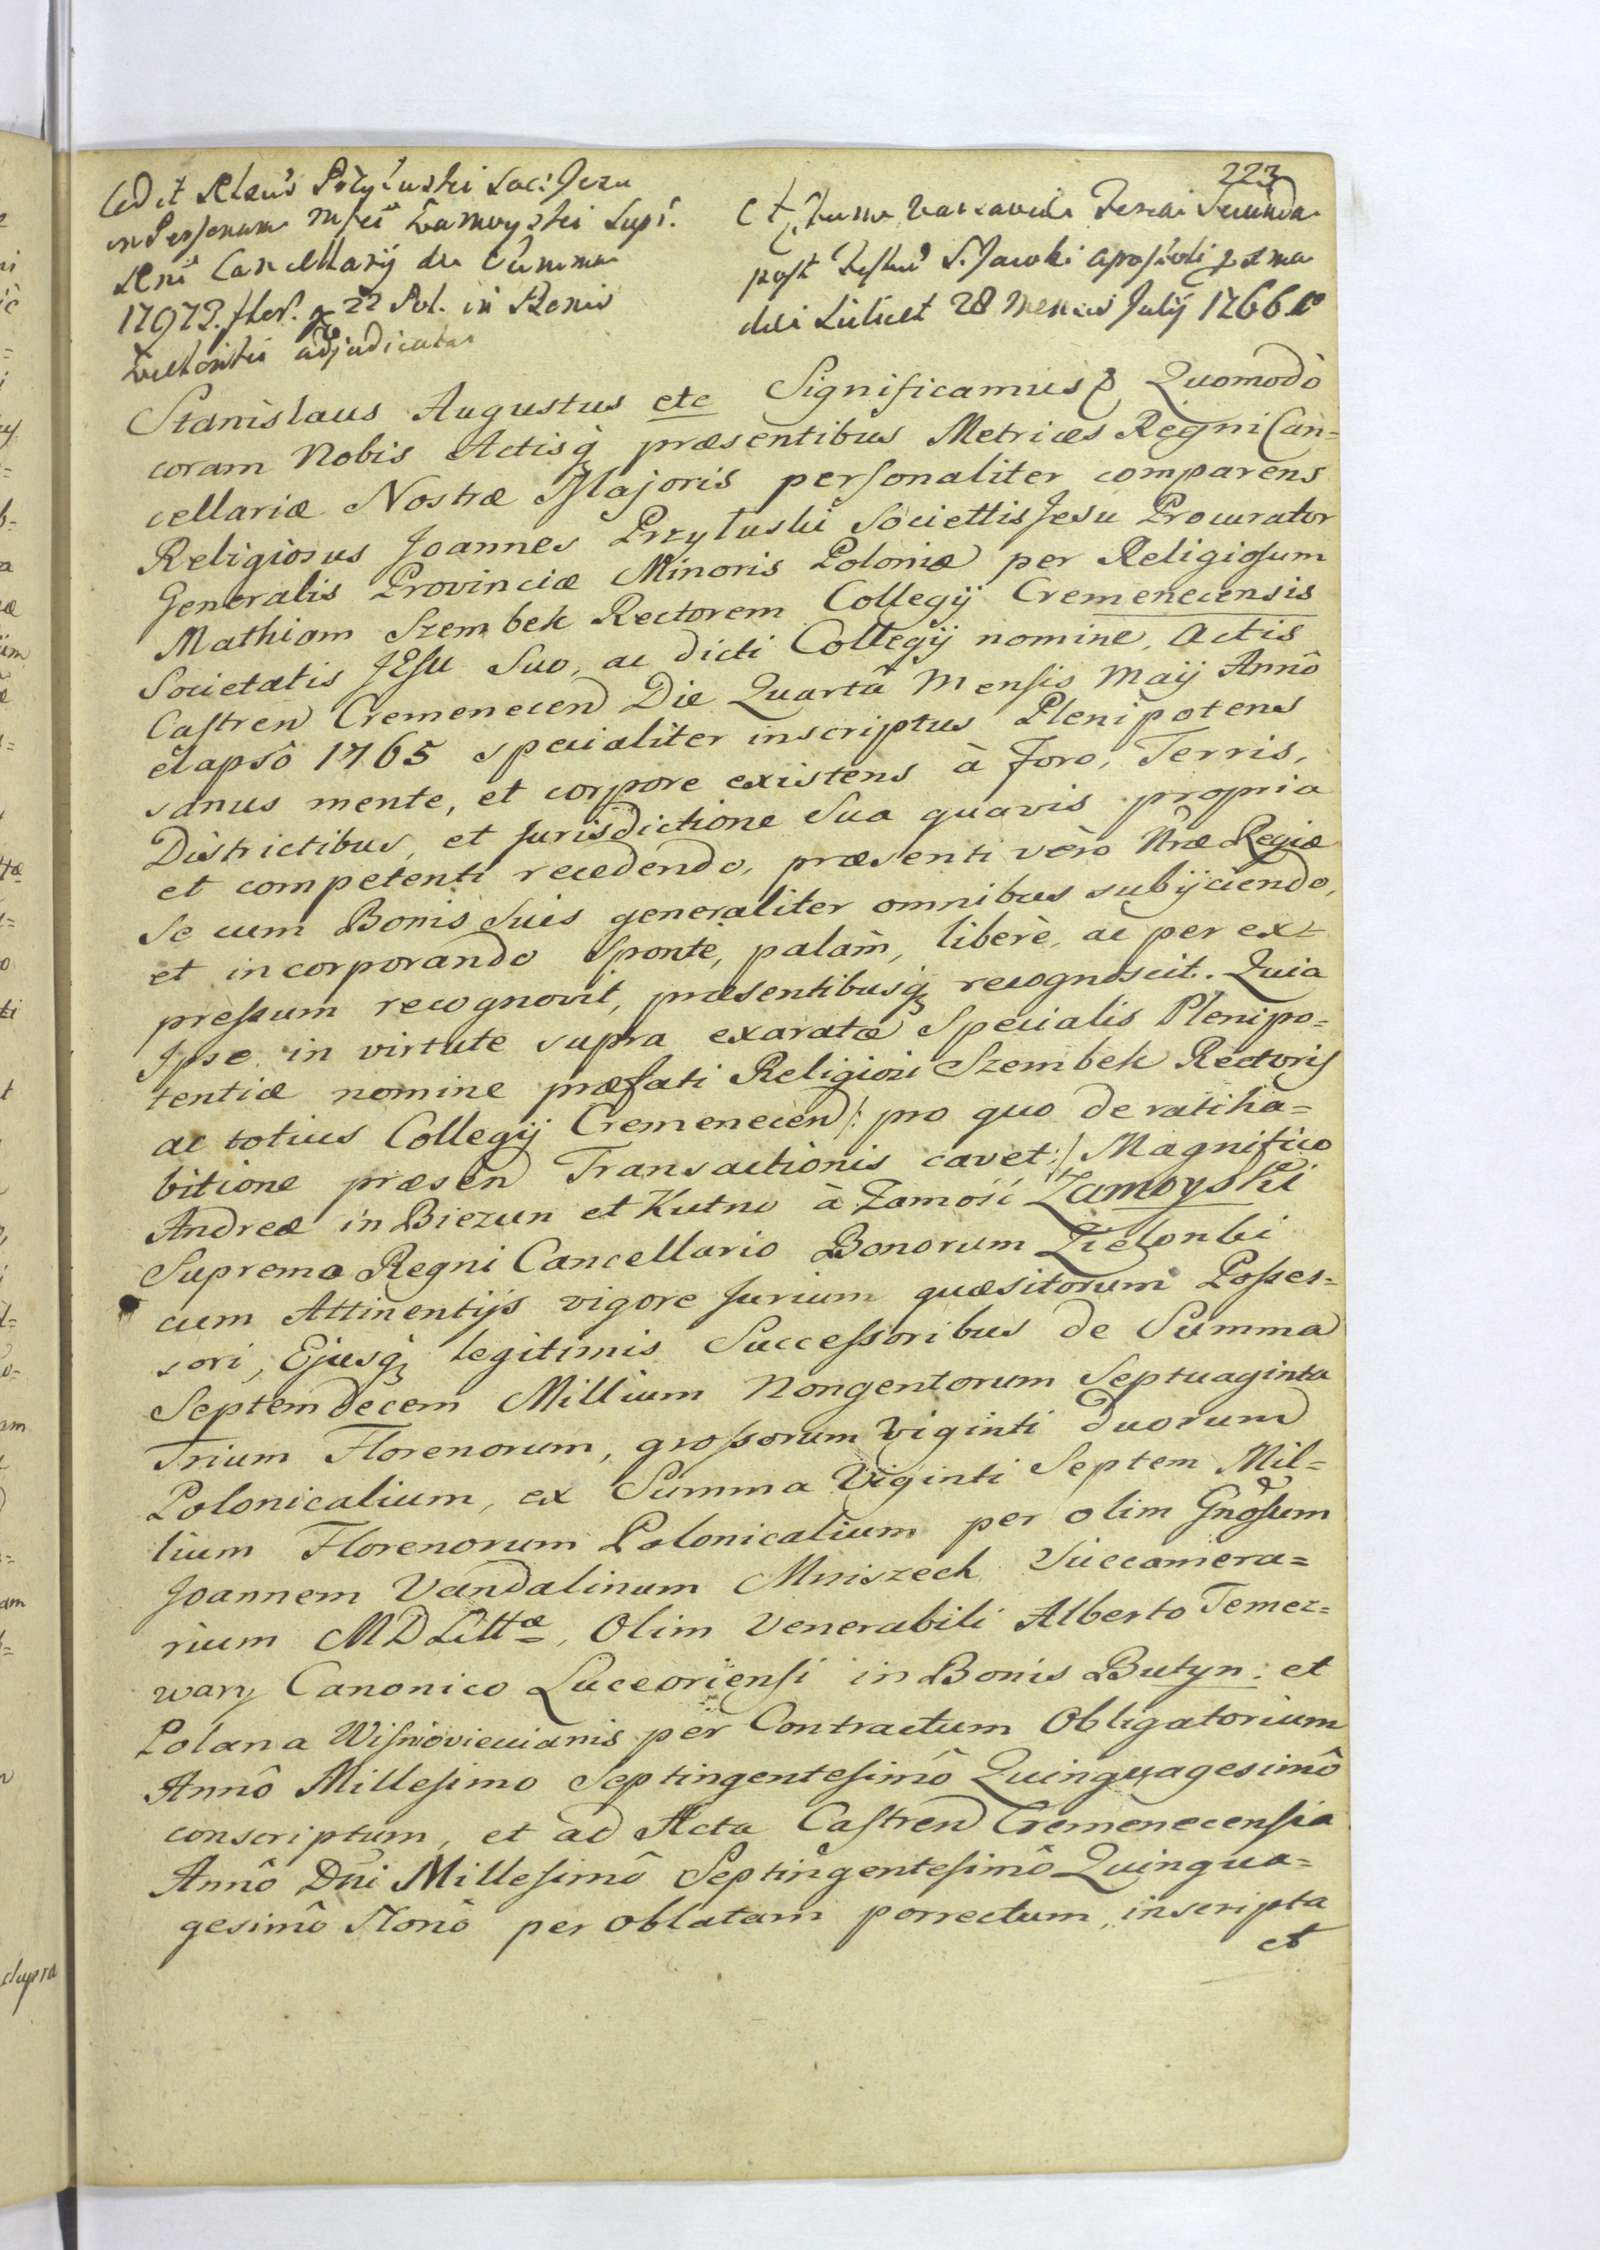 223
Cedit Relgus Przyłuski Soc: Jezu
in Personam Mfci Zamoyski Supr.
Regni Cancellarij de Summa
17973. flor. g 22 Pol. in Bonis
adjudicata
Actum Varsaviae Feria Secunda
post Festum S. Jacobi Apostoli proxima
die scilicet 28 Mensis Julij 1766
Stanislaus Augustus etc Significamus Quomodò
coram Nobis Actisq, præsentibus Metrices Regni Can=
cellariæ Nostræ Majoris personaliter comparens
Religiosus Joannes Przyłuski Societtis Jesu Procurator
Generalis Provinciæ Minoris Poloniæ per Religiosum
Mathiam Szembek Rectorem Collegij Cremenecensis
Societatis JEsu Suo, ac dicti Collegij nomine, Actis
Castren Cremenecen Die Quartâ Mensis Maij Annô
elapsô 1765 specialiter inscriptus Plenipotens
sanus mente, et corpore existens à Foro, Terris,
Districtibus, et Jurisdictione Sua quavis propria
et competenti recedendo, præsenti verò Nræ Regiæ
Se cum Bonis Suis generaliter omnibus subijciendo,
et incorporando Sponte, palàm, liberè, ac per ex=
pressum recognovit, præsentibusq, recognoscit. Quia
Ipse in virtute supra exaratæ Specialis Plenipo=
tentiæ nomine præfati Religiosi Szembek Rectoris
ac totius Collegij Cremenecen /: pro quo de ratiha=
bitione præsen Transactionis cavet :/ Magnifico
Andreæ in Biezun et Kutno à Zamość Zamoyski
Supremo Regni Cancellario Bonorum Zielonki
cum Attinentijs vigore Jurium quæsitorum Posses=
sori, Ejusq, legitimis Successoribus de Summa
Septemdecem Millium Nongentorum Septuaginta
Trium Florenorum, grossorum Viginti duorum
Polonicalium, ex Summa Viginti Septem Mil=
lium Florenorum Polonicalium per olim Gnosum
Joannem Vandalinum Mniszech Succamera=
rium MD Littæ, Olim Venerabili Alberto Temez=
wary Canonico Luceoriensi in Bonis Butyn: et
Polana Wisniovieccianis per Contractum Obligatorium
Annô Millesimo Septingentesimô Quinquagesimô
conscriptum, et ad Acta Castren Cremenecensia
Annô Dni Millesimô Septingentesimô Quinqua=
gesimô Nonô per Oblatam porrectum, inscripta
et